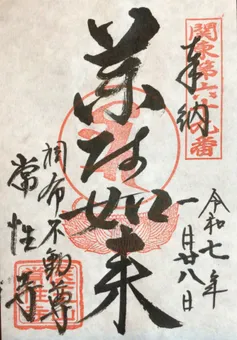 関東第六十九番
奉納
令和七年
一月廿八日
薬師如来
調布不動尊
常性寺